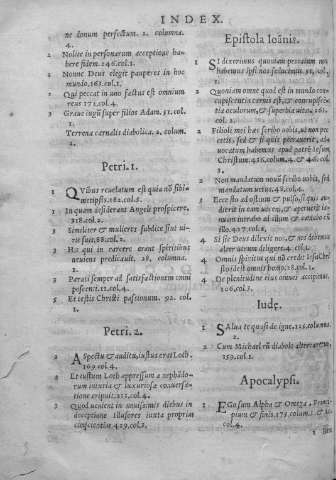 INDEX.
ne donum perfectum. 2. columna.
4.
2 Nolite in personarum acceptione ha-
bere fidem. 246.col.1.
2 Nonne Deus elegit pauperes in hoc
mundo. 163.col.1.
2 Qui peccat in uno factus est omnium
reus 171.col.4.
3 Grave iugū super filios Adam. 51.col.
1.
Terrena carnalis diabolica. 2. colum.
2.
Petri. 1.
1 QUibus revelatum est quia nō sibi
metipsis. 182.col.3.
1 In quem desiderant Angeli prospicere.
318.col.2.
3 Similiter & mulieres subdite sint vi-
ris suis, 88.col.
3 His qui in carcere erant spiritibus
veniens predicavit. 28. columna.
3 Parati semper ad satisfactionem omni
poscenti. 12.col.4.
5 Et testis Christi passionum. 92. col.
1.
Petri. 2.
2 ASpectu & auditu, iustus erat Loth.
169.col.4.
2 Et iustum Loth oppressum a nephādo-
rum iniuria & luxuriosa conversa-
tione eripuit. 211.col.4.
3 Quod venient in novissimis diebus in
deceptione illusores iuxta proprias
concupiscentias 429.col.2.
Epistola Ioānis.
1 SI dixerimus quoniam peccatum non
habemus ipsi nos seducimus. 35.col.
2 Quoniam omne quod est in mundo con-
cupiscentia carnis est, & concupiscen-
tia oculorum, & superbia vitae, 161.
col.
2 Filioli mei haec scribo vobis, ut non pec
cetis, sed & si quis peccaverit, ad-
vocatum habemus apud patrē Iesum
Christum. 416.colum. 4. & 46.
col.
2 Non mandatum novū scribo vobis, sed
mandatum vetus. 42.col.4.
3 Ecce sto ad ostium & pulso, si quis au-
dierit
illo. 407.col.
4 Et si sic Deus dilexit nos, & nos debemus
alterutrum diligere. 44.col.
4 Omnis spiritus qui
4 De plenitudine eius omnes accepimus.
106.col.3.
Iudę.
1 SAlva te quasi de igne. 115.column.
2.
2 Cum Michael cū diabolo altercaretur.
159.col.
Apocalypsi.
1 EGo sum Alpha & Omega, Princi-
pium & finis. 175.column. & 12.
col.4.